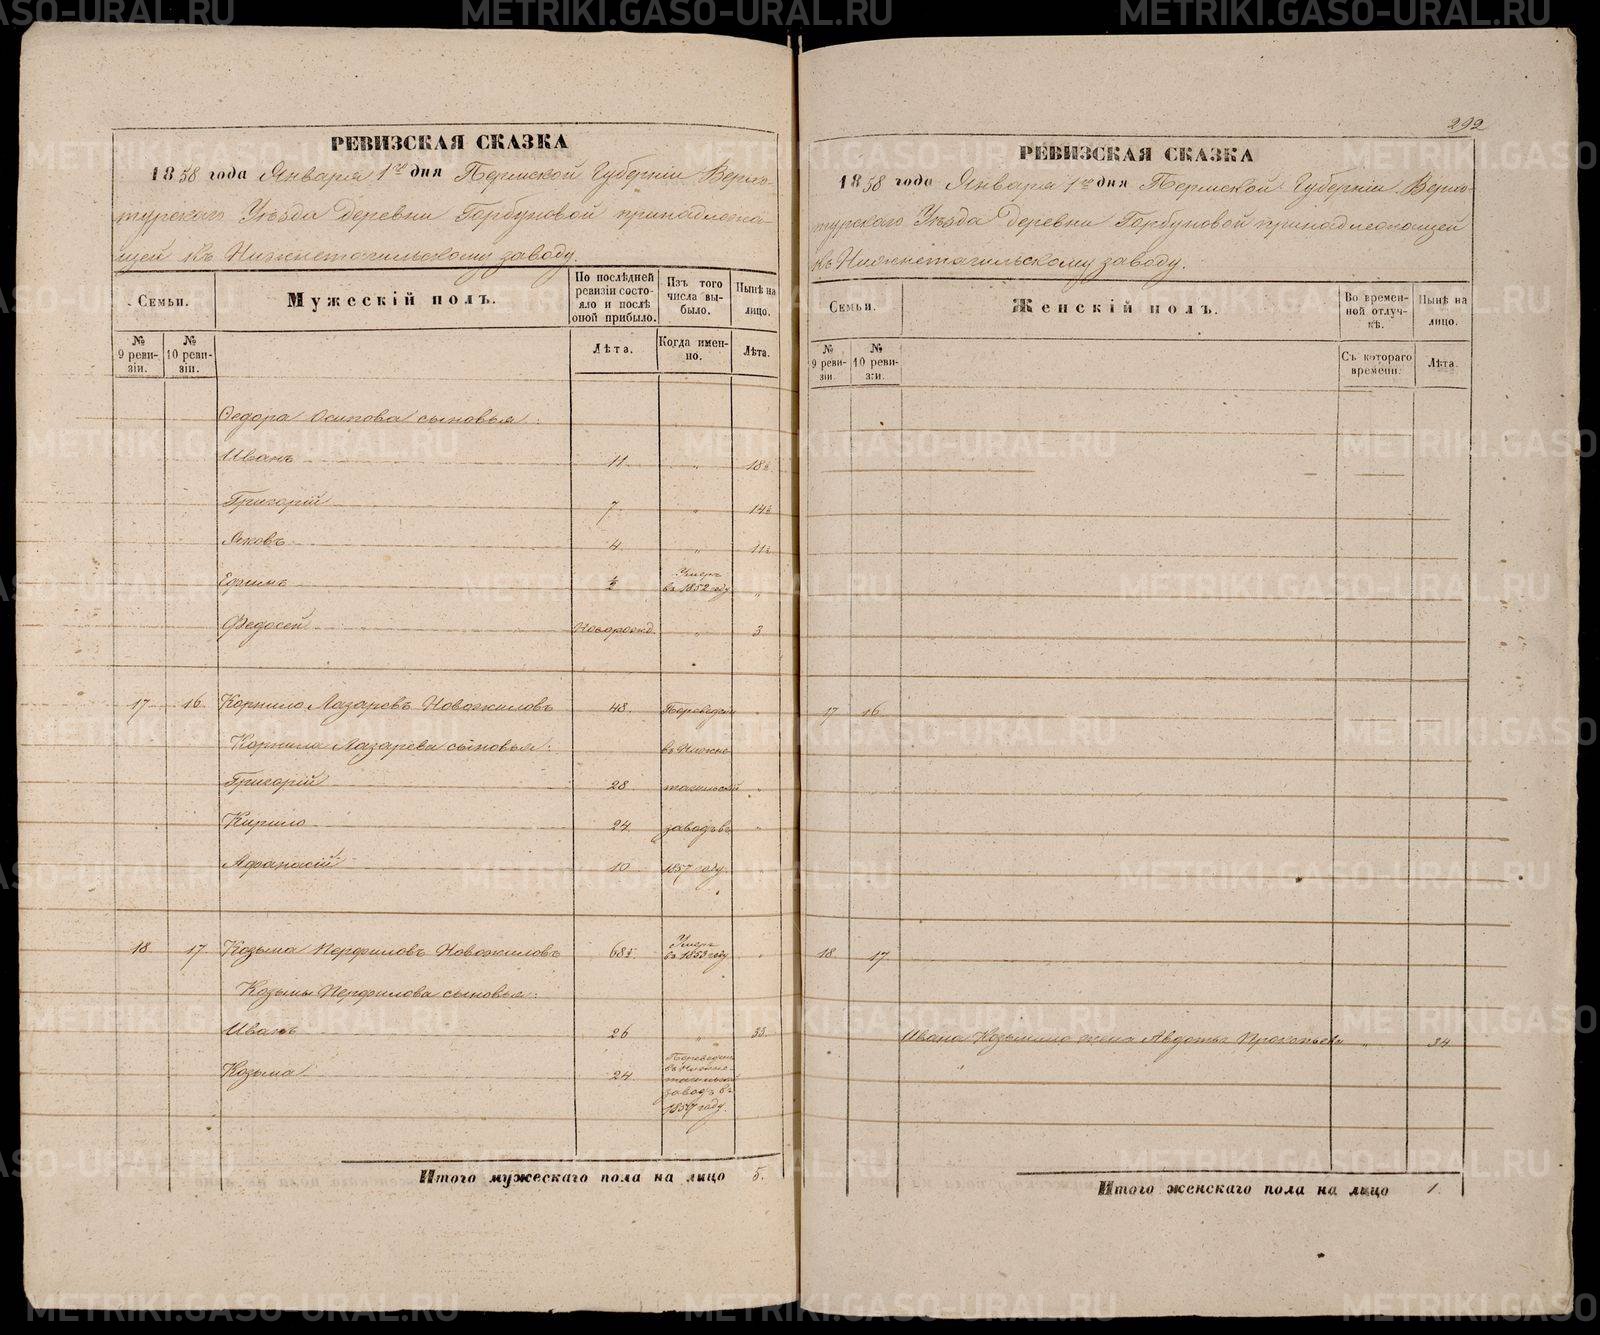 РЕВИЗСКАЯ СКАЗКА
1858 года Января 1го дня Пермской Губернiи Верхо-
турскаго Уѣзда Деревни Горбуновой принадлежа-
щей къ Нижнетагильскому заводу.
Семьи.
Мужескiй полъ.
По послѣдней ревизiи состояло и послѣ оной прибыло.
Изъ того числа выбыло.
Нынѣ на лицо.
№ 9 ревизiи.
№ 10 ревизiи.
Лѣта.
Когда именно.
Лѣта.
Федора Осипова сыновья:
Иванъ 11 „ 18½
Григорiй 7 „ 14½
Яковъ 4 „ 11½
Ефимъ ½ Умеръ въ 1852 году „
Федосей Новорожд. „ 3
17 16 Корнило Лазаревъ Новожиловъ 48. Переведен „
Корнила Лазарева сыновья: въ Нижне
Григорiй 28 тагильскiй „
Кирило 24. заводъ въ „
Афанасiй 10 1857 году.
18 17 Козьма Перфиловъ Новожиловъ 68½ Умеръ въ 1853 году „
Козьмы Перфилова сыновья:
Иванъ 26 „ 33.
Козьма 24 Переведен въ Нижне-тагильскiй заводъ въ 1857 году.
Итого мужескаго пола на лицо 5.
292
РЕВИЗСКАЯ СКАЗКА
1858 года Января 1го дня Пермской Губернiи Верхо-
турскаго Уѣзда Деревни Горбуновой принадлежащей
къ Нижнетагильскому заводу.
Семьи.
Женскiй полъ.
Во временной отлучкѣ.
Нынѣ на лицо.
№ 9 ревизiи.
№ 10 ревизiи.
Съ котораго времени.
Лѣта.
17 16
18 17
Ивана Козьмина жена Авдотья Прокопьева „ 34
Итого женскаго пола на лицо 1.
METRIKI.GASO-URAL.RU